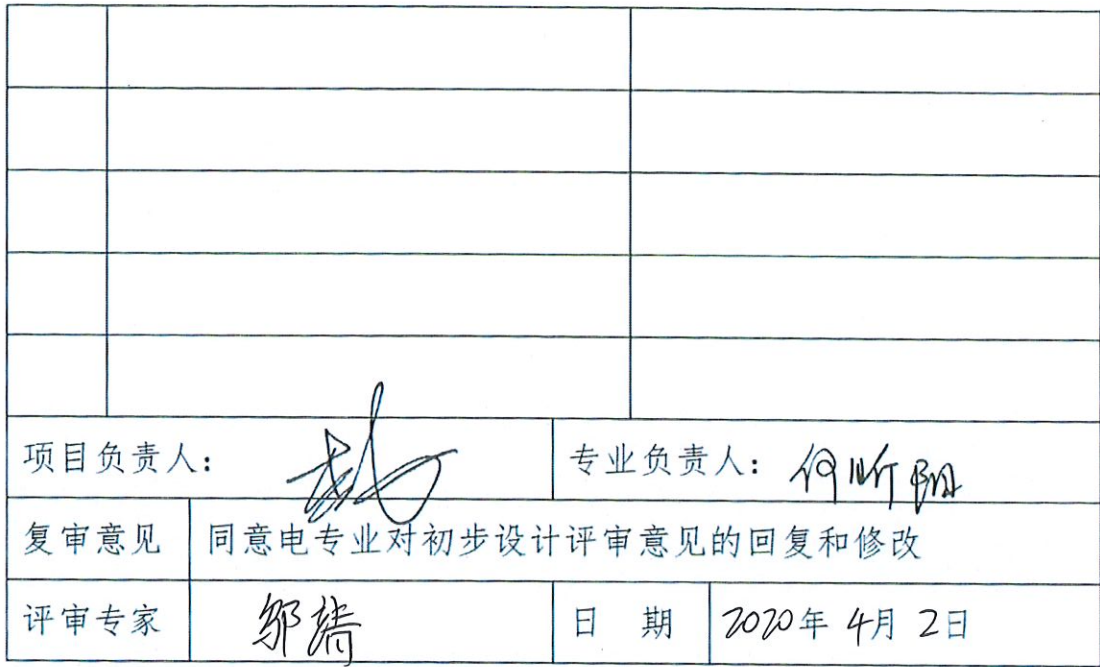 项目负责人： 专业负责人：何昕阳
复审意见 同意电专业对初步设计评审意见的回复和修改
评审专家 日 期 2020年 4月 2日